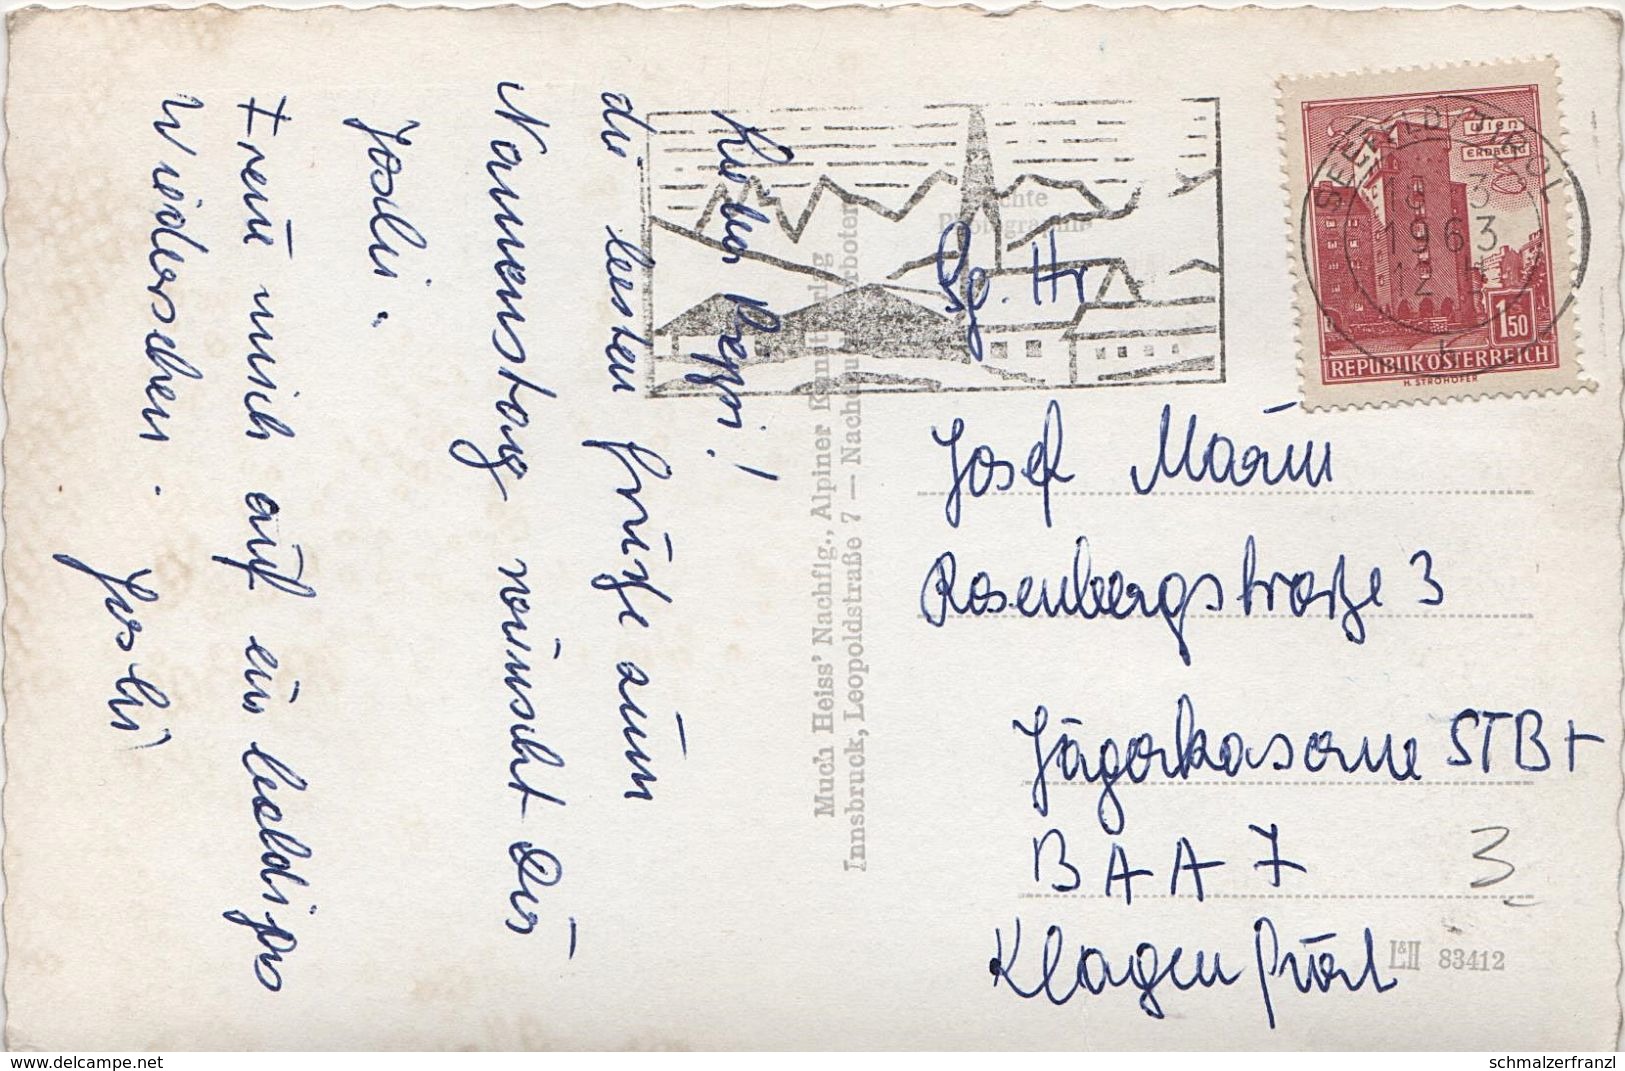 Lieber Peppi!
die besten Grüße zum
Namenstag wünscht Dir
Joshi.
Freue mich auf ein baldiges
Wiedersehen.
Joshi
Much Heiss' Nachflg., Alpiner Kunstverlag
Innsbruck, Leopoldstraße 7 — Nachdruck verboten
Echte
Photographie
SEEFELD TIROL
18 3
1963
12
Wien
ERDBERG
1.50
REPUBLIK ÖSTERREICH
H. STROHOFER
Sg. Hr
Josef
Rosenbergstraße 3
Jägerkaserne STB+
BAA 7
3
Klagenfurt
L&H 83412
delcampe.net
schmalzerfranzl